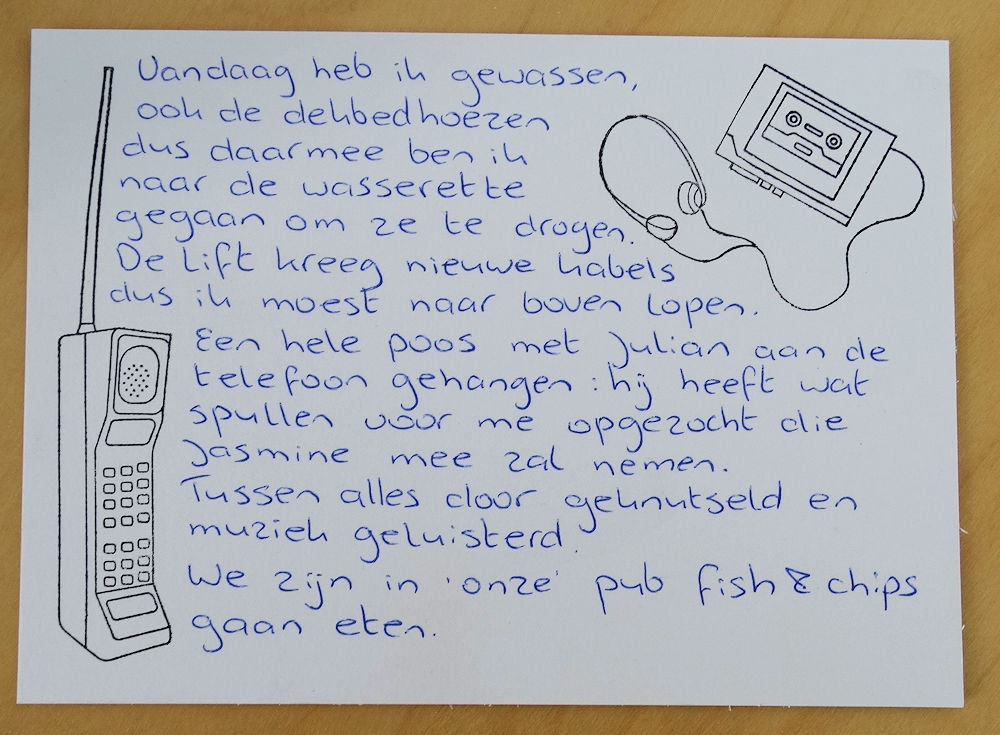 Vandaag heb ik gewassen,
ook de dekbedhoezen
dus daarmee ben ik
naar de wasserette
gegaan om ze te drogen.
De lift kreeg nieuwe kabels
dus ik moest naar boven lopen.
Een hele poos met Julian aan de
telefoon gehangen : hij heeft wat
spullen voor me opgezocht die
Jasmine mee zal nemen.
Tussen alles door geknutseld en
muziek geluisterd.
We zijn in 'onze' pub fish & chips
gaan eten.